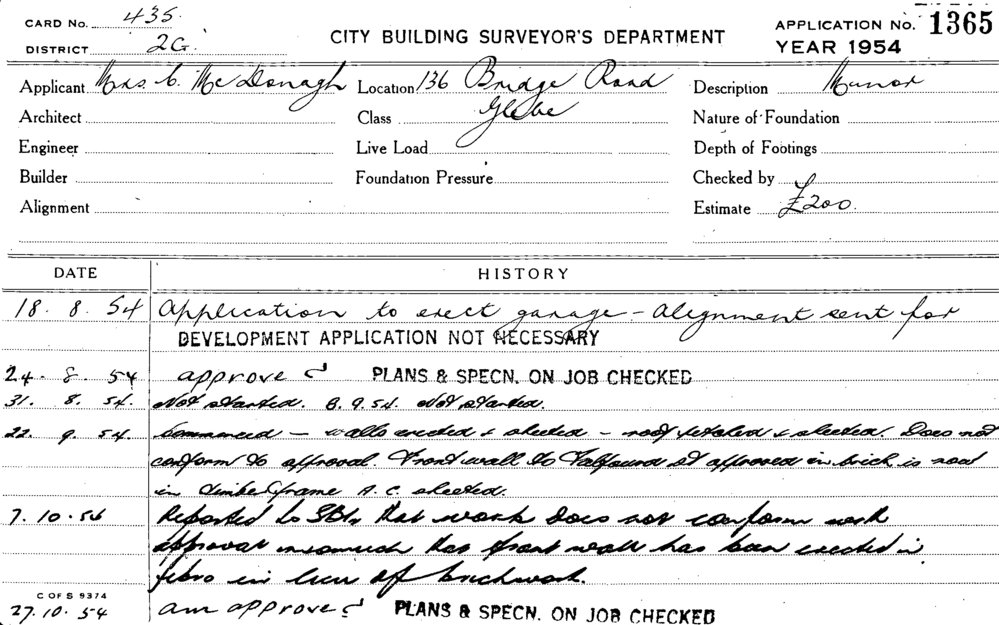 CARD No. 435
DISTRICT 2G.
CITY BUILDING SURVEYOR'S DEPARTMENT
APPLICATION No. 1365
YEAR 1954
Applicant Mrs. C. McDonagh Location 136 Bridge Road Description Manor
Architect Class Glebe Nature of Foundation
Engineer Live Load Depth of Footings
Builder Foundation Pressure Checked by
Alignment Estimate £200.
DATE HISTORY
18. 8. 54 Application to erect garage - Alignment sent for
DEVELOPMENT APPLICATION NOT NECESSARY
24. 8. 54 approved PLANS & SPECN. ON JOB CHECKED
31. 8. 54. Not started. 8.9.54. Not started.
22. 9. 54. Commenced - walls erected & sheeted - roof pitched & sheeted. Does not
conform to approval. Front wall to St approved in brick is now
in timber frame A.C. sheeted.
7.10.54 Reported to that work does not conform with
approval inasmuch that front wall has been erected in
fibro in lieu of brickwork.
C OF S 9374
27.10.54 am approved PLANS & SPECN. ON JOB CHECKED